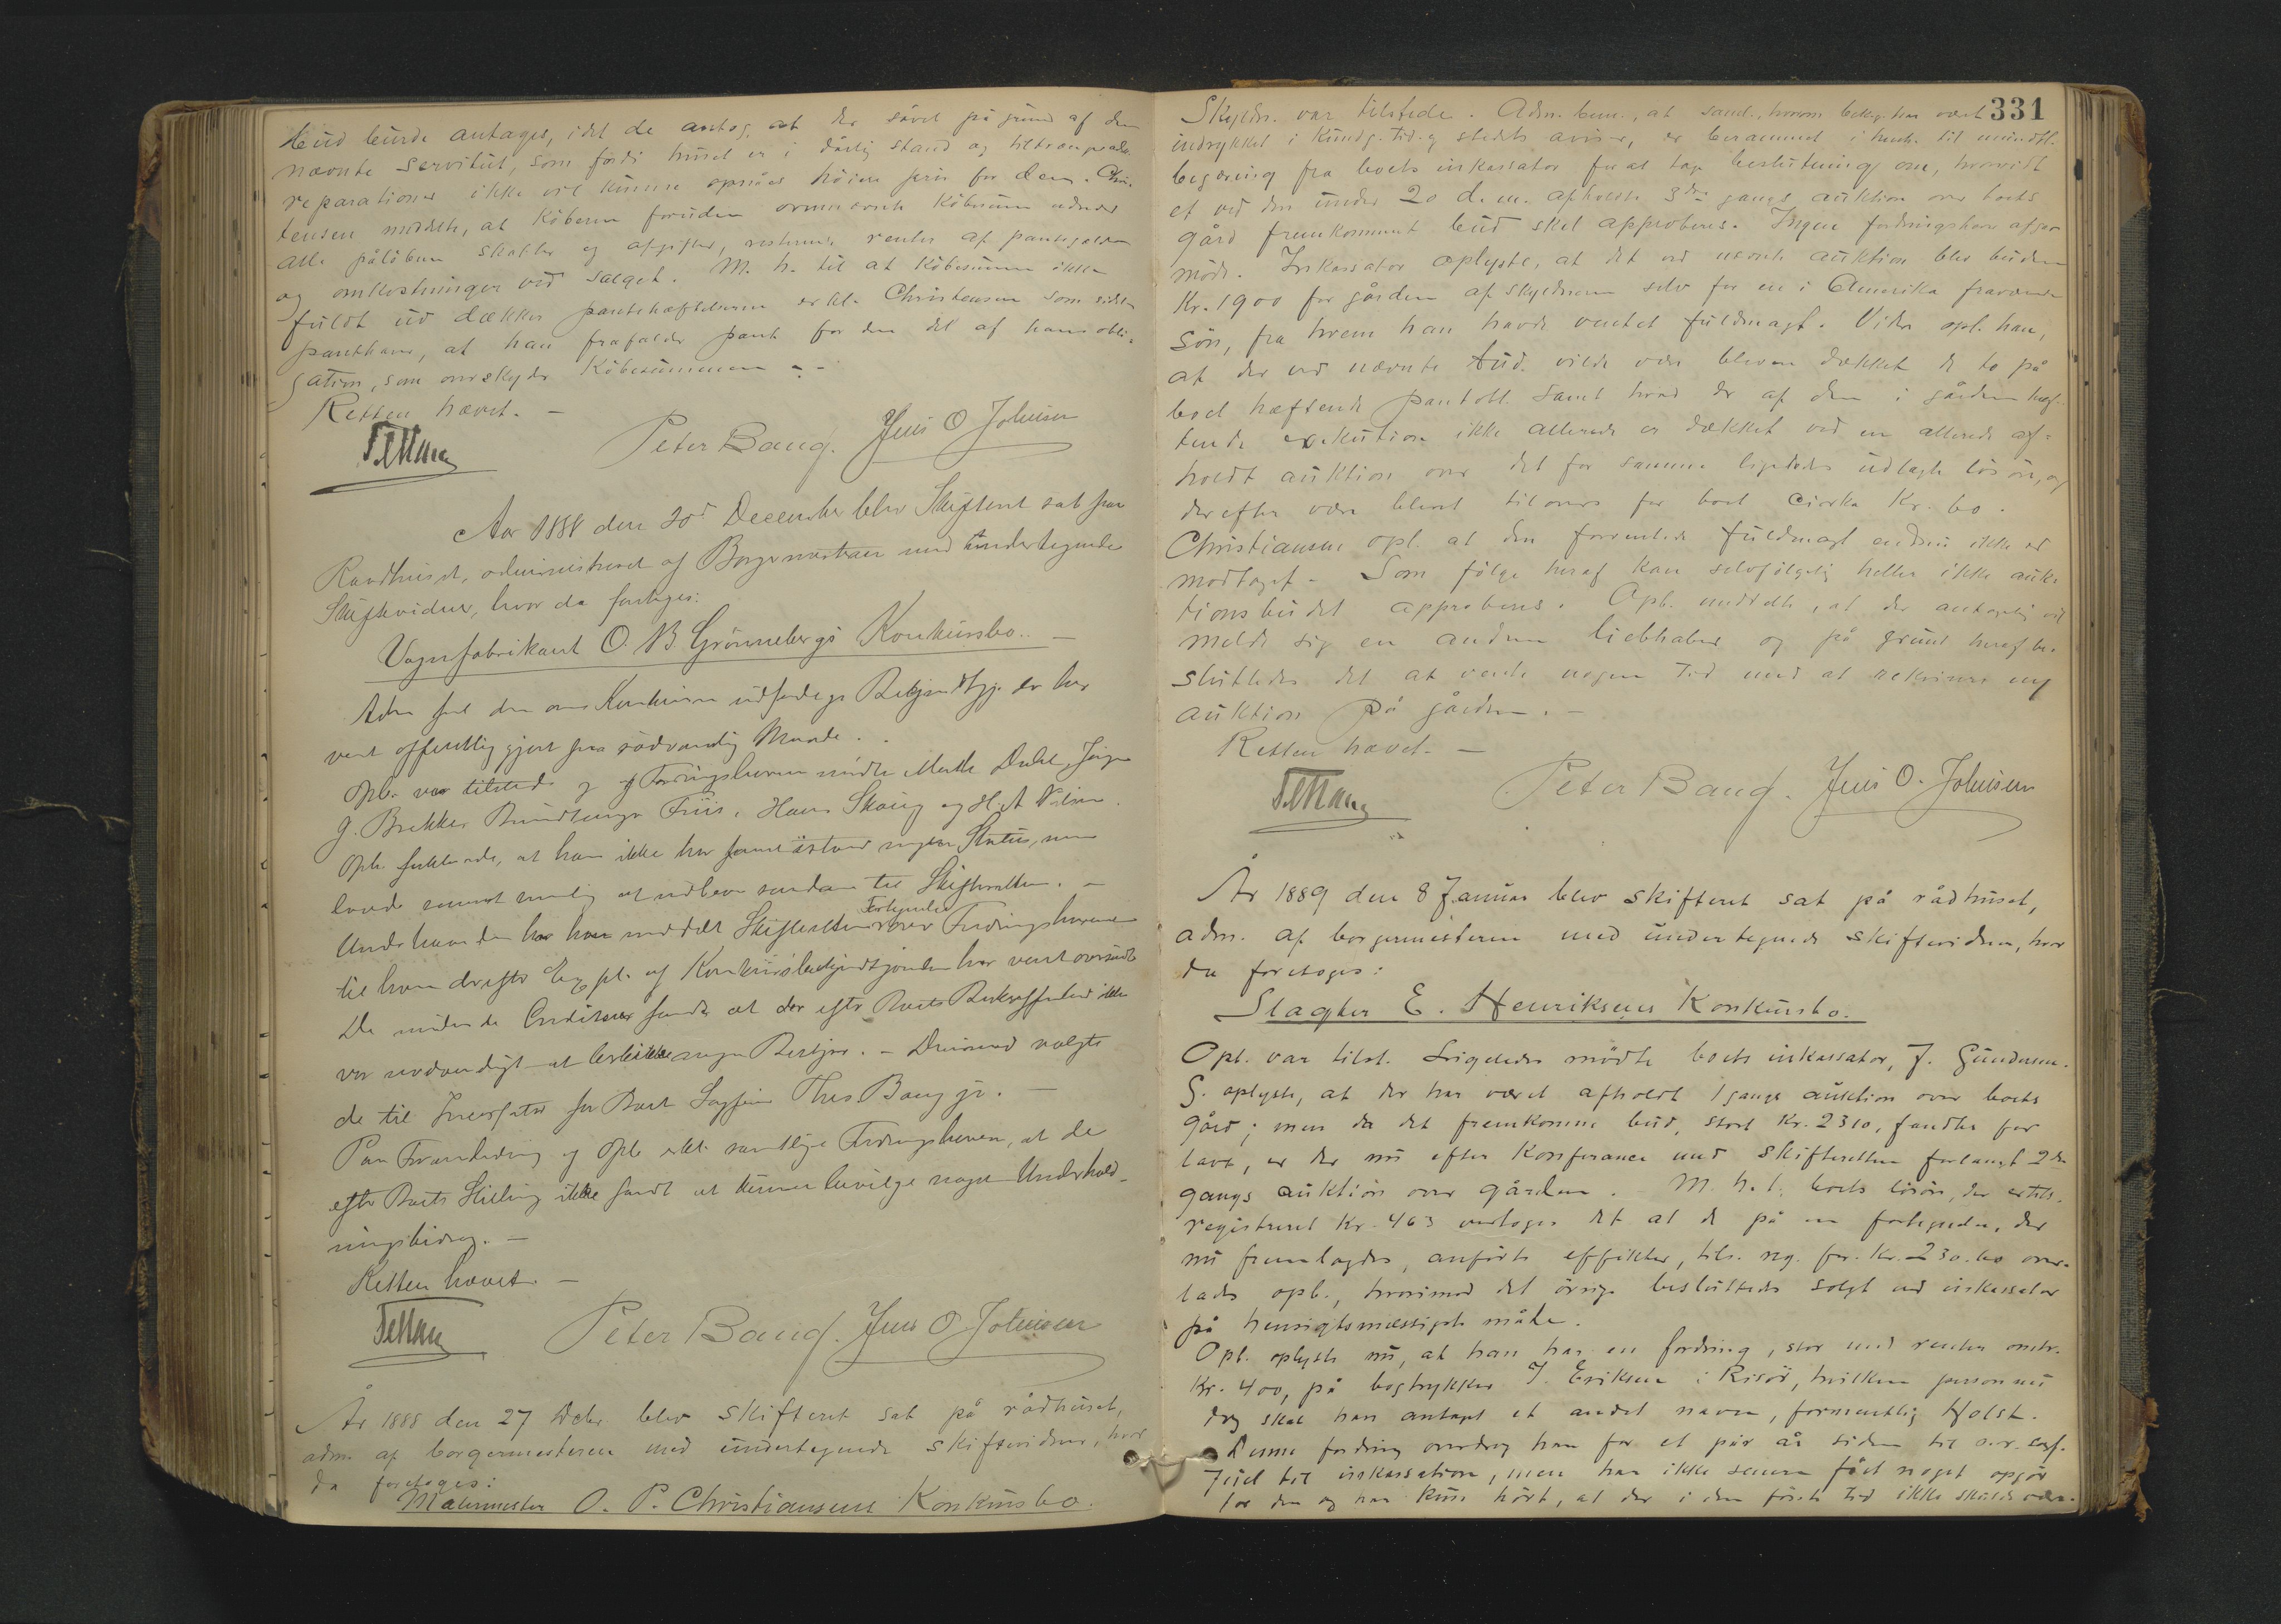 bud burde antages, idet de antog, at der såvel på grund af den
nævnte servitut, som fordi huset er i dårlig stand og tiltrænger
reparationer ikke vil kunne opnåes höiere pris for den. Chris-
tensen meddelte, at köberen foruden ovennævnte köbesum udreder
alle påløbne skatter og afgifter, resterende renter af pantegælden
og omkostninger ved salget. M. h. til at köbesummen ikke
fuldt ud dækker pantehæftelserne erkl. Christensen som sidste
panthaver, at han frafalder pant for den del af hans obli-
gation, som overskyder Köbesummen. -
Retten hævet. -
Peter Bang. Jens O Johnsen
Aar 1888 den 20de December blev Skifteret sat paa
Raadhuset, administreret af Borgermesteren med undertegnede
Skiftevidner, hvor da foretoges:
Vognfabrikant O. B. Grönnebergs Konkursbo. -
Adm. den om Konkursen udfærdigede Bekjendtgj. er
været offentliggjort paa sædvanlig Maade.
Opb. var tilstede og af Fordringshaverne mødte Dahl,
G. Brekke, Friis, Hans Skaug og H. A. Nilsen.
Opb. forklarede, at han ikke har formaaet istand nogen Status, men
lovede snarest mulig at udlevere saadan til Skifteretten. -
Underhaanden har han meddelt Skifteretten Fortegnelse over Fordringshaverne
til hvem derefter Expl. af Konkursbekjendtgjørelsen har været oversendt
De mødende Creditorer fandt at det efter Boets Beskaffenhed ikke
var nødvendigt at beskikke nogen Bestyrer. - Derimod valgte
de til Incassator for Boet Sagfører Thos. Bang jr. -
Paa Foranledning af Opb. erkl. samtlige Fordringshavere, at de
efter Boets Stilling ikke fandt at kunne bevilge nogen Underhold-
ningsbidrag. -
Retten hævet. -
Peter Bang. Jens O Johnsen
År 1888 den 27 Dcbr blev skifteret sat på rådhuset,
adm. af borgermesteren med undertegnede skiftevidner, hvor
da foretoges:
Malermester O. P. Christiansens Konkursbo.
331
Skyldn. var tilstede. Adm. bem., at saml., hvorom bekg. har været
indrykket i Kundg. tid. og stedets aviser, er berammet i henh. til mundtl.
begæring fra boets inkassator for at tage beslutning om, hvorvidt
et ved den under 20 d. m. afholdte 3die gangs auktion over boets
gård fremkommet bud skal approberes. Ingen fordringshaver afgav
möde. Inkassator oplyste, at det ved nævnte auktion blev buden
Kr. 1900 for gården af skyldneren selv for en i Amerika fraværende
sön, fra hvem han havde ventet fuldmagt. Videre opl. han,
at der ved nævnte bud vilde være bleven dækket de to på
boet hæftende pantobl. samt hvad der af den i gården hæf-
tende exekution ikke allerede er dækket ved en allerede af-
holdt auktion over det for samme ligeledes udlagte lösöre, og
derefter være blevet tilovers for boet cirka Kr. 60.
Christiansen opl. at den forventede fuldmagt endnu ikke er
modtaget. Som følge heraf kan selvfølgelig heller ikke auk-
tionsbudet approberes. Opb. meddelte, at der antagelig vil
melde sig en anden liebhaber og på grund heraf be-
sluttedes det at vente nogen tid med at rekvirere ny
auktion på gården. -
Retten hævet. -
Peter Bang. Jens O. Johnsen
År 1889 den 8 Januar blev skifteret sat på rådhuset,
adm. af borgermesteren med undertegnede skiftevidner, hvor
da foretoges:
Slagter E. Henriksens Konkursbo.
Opb. var tilst. Ligeledes mödte boets inkassator, J. Gundersen.
G. oplyste, at der har været afholdt 1 gangs auktion over boets
gård; men da det fremkomne bud, stort Kr. 2310, fandtes for
lavt, er der nu efter Konferance med skifteretten forlangt 2den
gangs auktion over gården. M. h. t. boets lösöre, der er tils.
registreret Kr. 463 vedtoges det at de på en fortegnelse, der
nu fremlagdes, anførte effekter, tils. reg. for Kr. 230.60 over-
lades opb., hvorimod det övrige besluttedes solgt ved inkassator
på hensigtsmæssigste måde.
Opb. oplyste nu, at han har en fordring, stor med renter omtr.
Kr. 400, på bogtrykker J. Eriksen i Risör, hvilken person nu
dog skal have antaget et andet navn, formentlig Holst.
Denne fordring overdrog han for et par år siden til o.r.sagf.
Juel til inkassation, men har ikke senere fået noget opgjör
for den og har kun hört, at der i den förste tid ikke skulde være